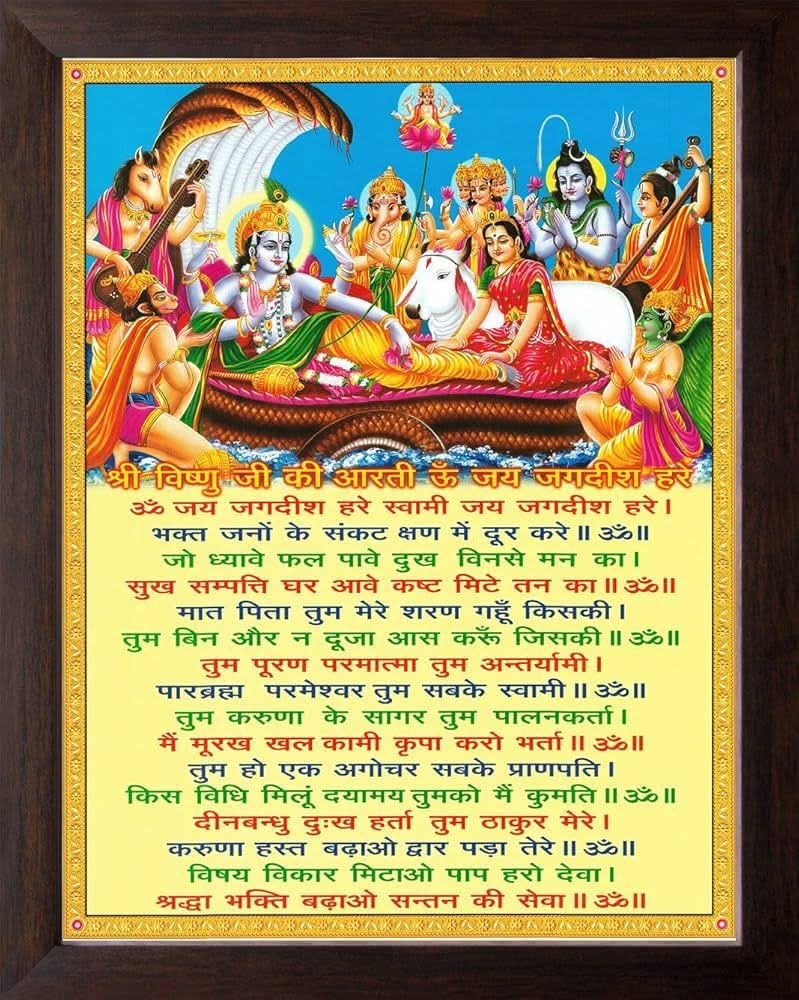 श्री विष्णु जी की आरती ऊँ जय जगदीश हरे
ॐ जय जगदीश हरे स्वामी जय जगदीश हरे।
भक्त जनों के संकट क्षण में दूर करे॥ॐ॥
जो ध्यावे फल पावे दुख विनसे मन का।
सुख सम्पत्ति घर आवे कष्ट मिटे तन का॥ॐ॥
मात पिता तुम मेरे शरण गहूँ किसकी।
तुम बिन और न दूजा आस करूँ जिसकी॥ॐ॥
तुम पूरण परमात्मा तुम अन्तर्यामी।
पारब्रह्म परमेश्वर तुम सबके स्वामी॥ॐ॥
तुम करुणा के सागर तुम पालनकर्ता।
मैं मूरख खल कामी कृपा करो भर्ता॥ॐ॥
तुम हो एक अगोचर सबके प्राणपति।
किस विधि मिलूं दयामय तुमको मैं कुमति॥ॐ॥
दीनबन्धु दुःख हर्ता तुम ठाकुर मेरे।
करुणा हस्त बढ़ाओ द्वार पड़ा तेरे॥ॐ॥
विषय विकार मिटाओ पाप हरो देवा।
श्रद्धा भक्ति बढ़ाओ सन्तन की सेवा॥ॐ॥